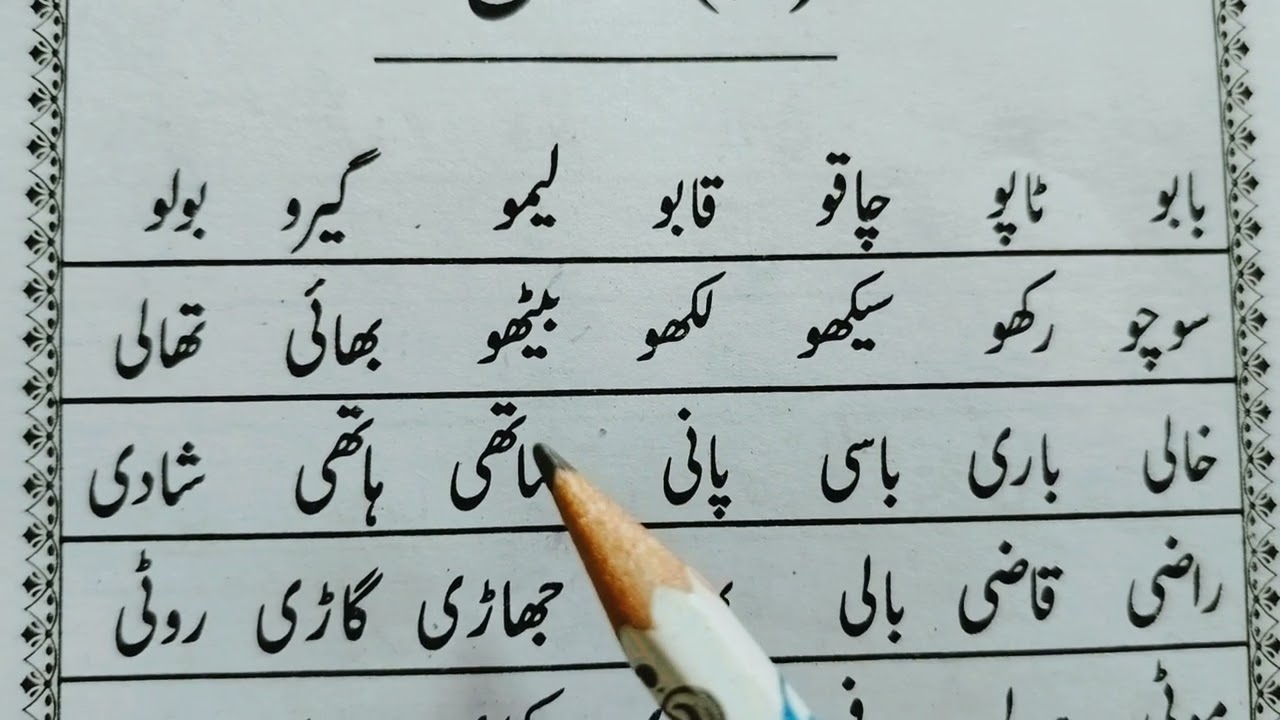 بابو ٹاپو چاقو قابو لیمو گیرو بولو
سوچو رکھو سیکھو لکھو بیٹھو بھائی تھالی
خالی باری باسی پانی ساتھی ہاتھی شادی
راضی قاضی بالی جھاڑی گاڑی روٹی